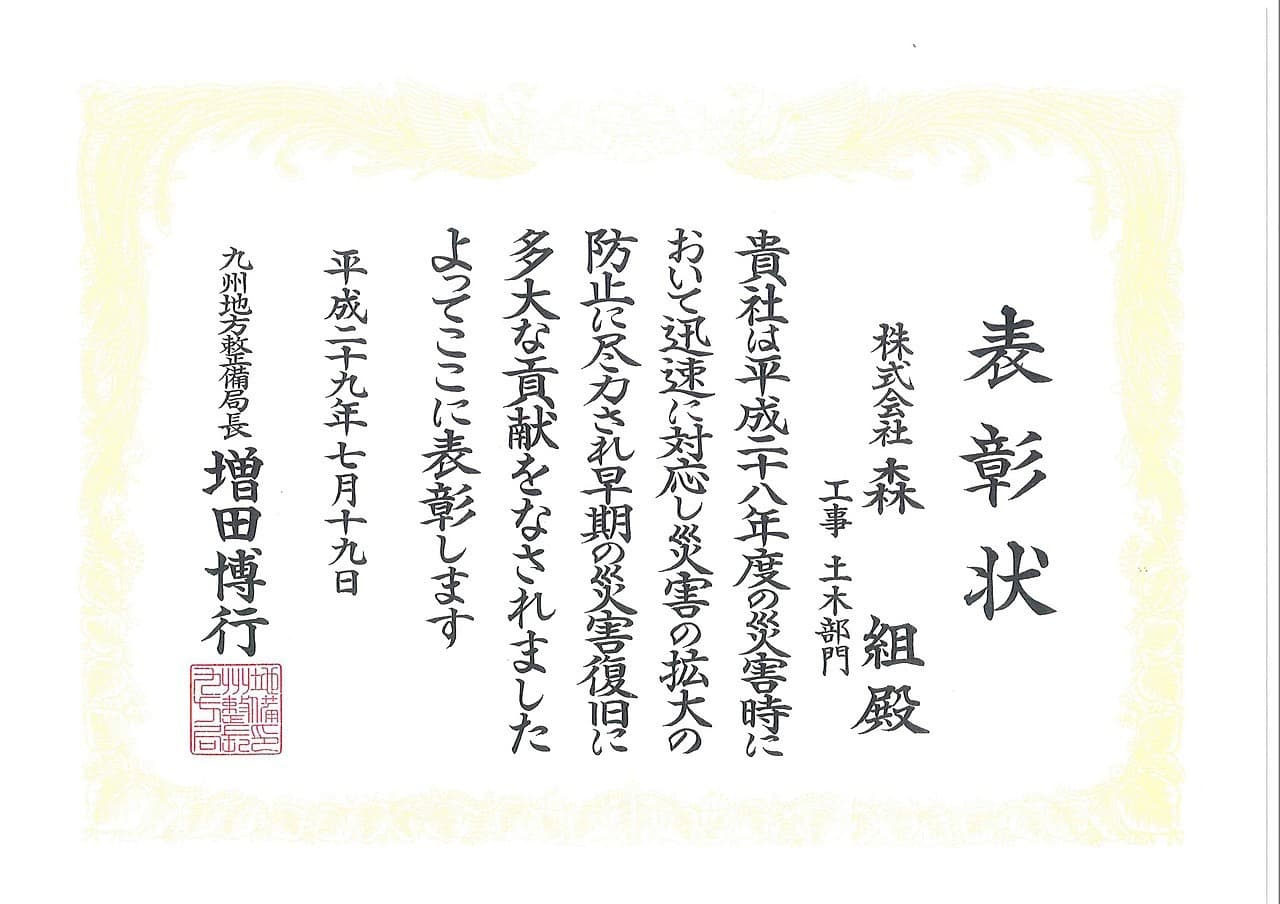 表彰状
株式会社 森 組 殿
工事 土木部門
貴社は平成二十八年度の災害時に
おいて迅速に対応し災害の拡大の
防止に尽力され早期の災害復旧に
多大な貢献をなされました
よってここに表彰します
平成二十九年七月十九日
九州地方整備局長 増田博行